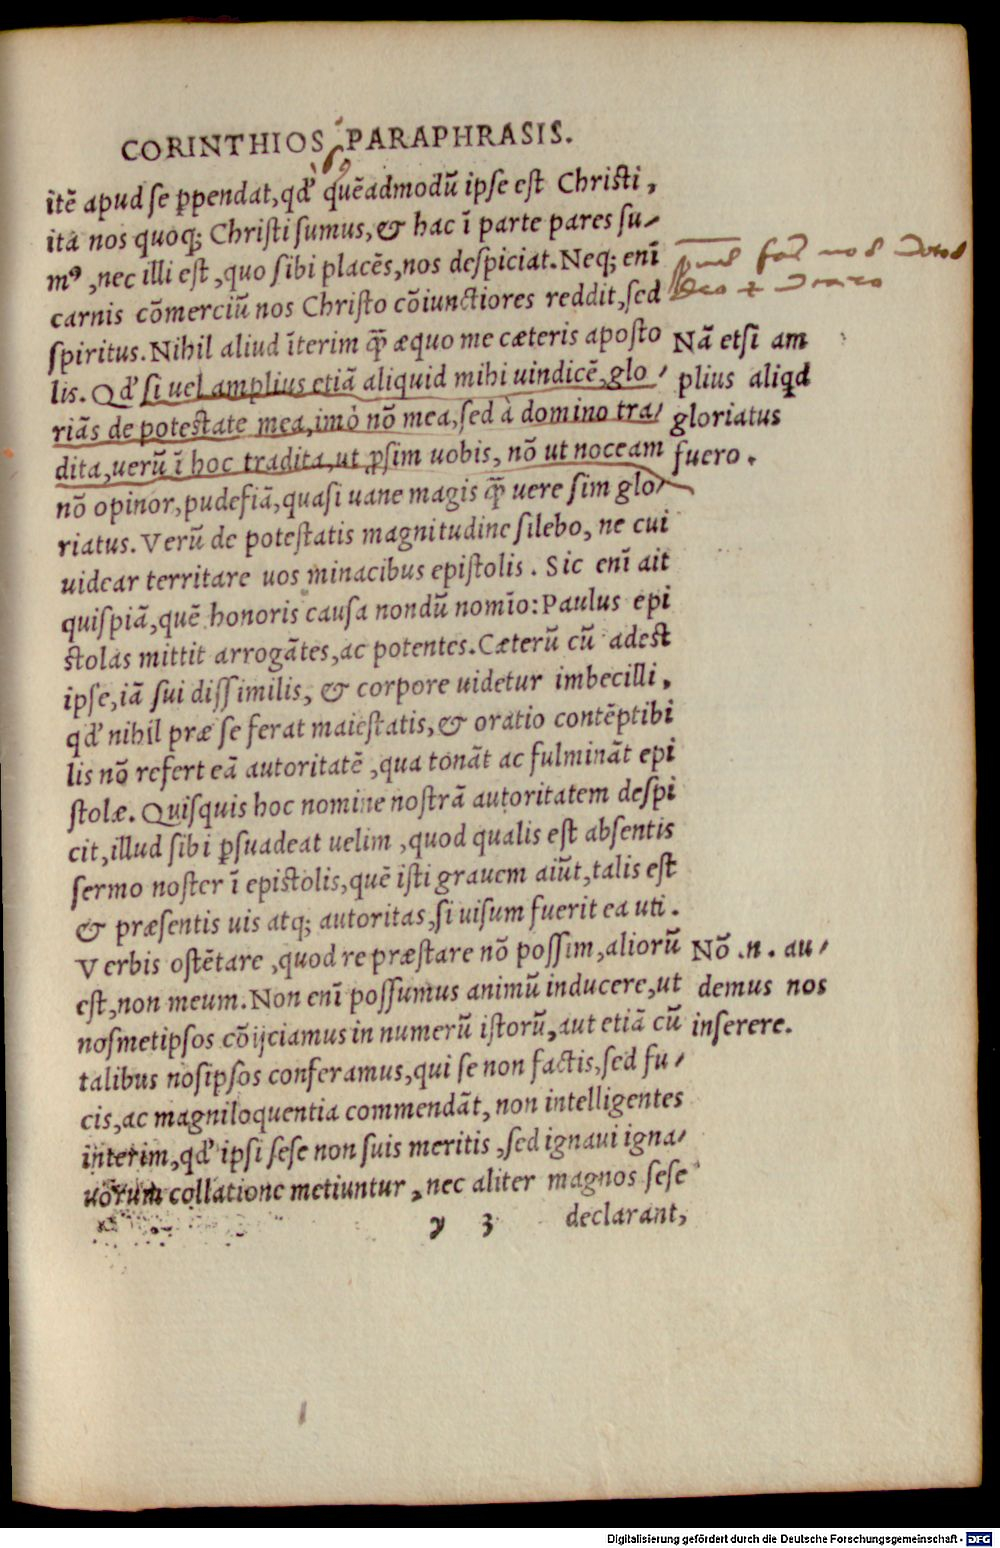 CORINTHIOS PARAPHRASIS.
itē apud se ꝑpendat, qđ quēadmodū ipse est Christi,
ita nos quoq; Christi sumus, & hac ī parte pares su-
mꝰ, nec illi est, quo sibi placēs, nos despiciat. Neq; enī
carnis cōmerciū nos Christo cōiunctiores reddit, sed
spiritus. Nihil aliud īterim q̄ æquo me cæteris aposto
lis. Qđ si uel amplius etiā aliquid mihi uindicē, glo
riās de potestate mea, imò nō mea, sed à domino tra-
dita, uerū ī hoc tradita, ut ꝓsim uobis, nō ut noceam
nō opinor, pudefiā, quasi uane magis q̄ uere sim glo-
riatus. Verū de potestatis magnitudine silebo, ne cui
uidear territare uos minacibus epistolis. Sic enī ait
quispiā, quē honoris causa nondū nomīo: Paulus epi
stolas mittit arrogātes, ac potentes. Cæterū cū adest
ipse, iā sui dissimilis, & corpore uidetur imbecilli,
qđ nihil præ se ferat maiestatis, & oratio contēptibi
lis nō refert eā autoritatē, qua tonāt ac fulmināt epi
stolæ. Quisquis hoc nomine nostrā autoritatem despi
cit, illud sibi ꝑsuadeat uelim, quod qualis est absentis
sermo noster ī epistolis, quē isti grauem aiūt, talis est
& præsentis uis atq; autoritas, si uisum fuerit ea uti.
Verbis ostētare, quod re præstare nō possim, aliorū
est, non meum. Non enī possumus animū inducere, ut
nosmetipsos cōijciamus in numerū istorū, aut etiā cū
talibus nosipsos conferamus, qui se non factis, sed fu-
cis, ac magniloquentia commendāt, non intelligentes
interim, qđ ipsi sese non suis meritis, sed ignaui igna-
uorum collatione metiuntur, nec aliter magnos sese
y 3 declarant,
Nā etsi am
plius aliqd
gloriatus
fuero.
Nō .n. au-
demus nos
inserere.
Digitalisierung gefördert durch die Deutsche Forschungsgemeinschaft - DFG